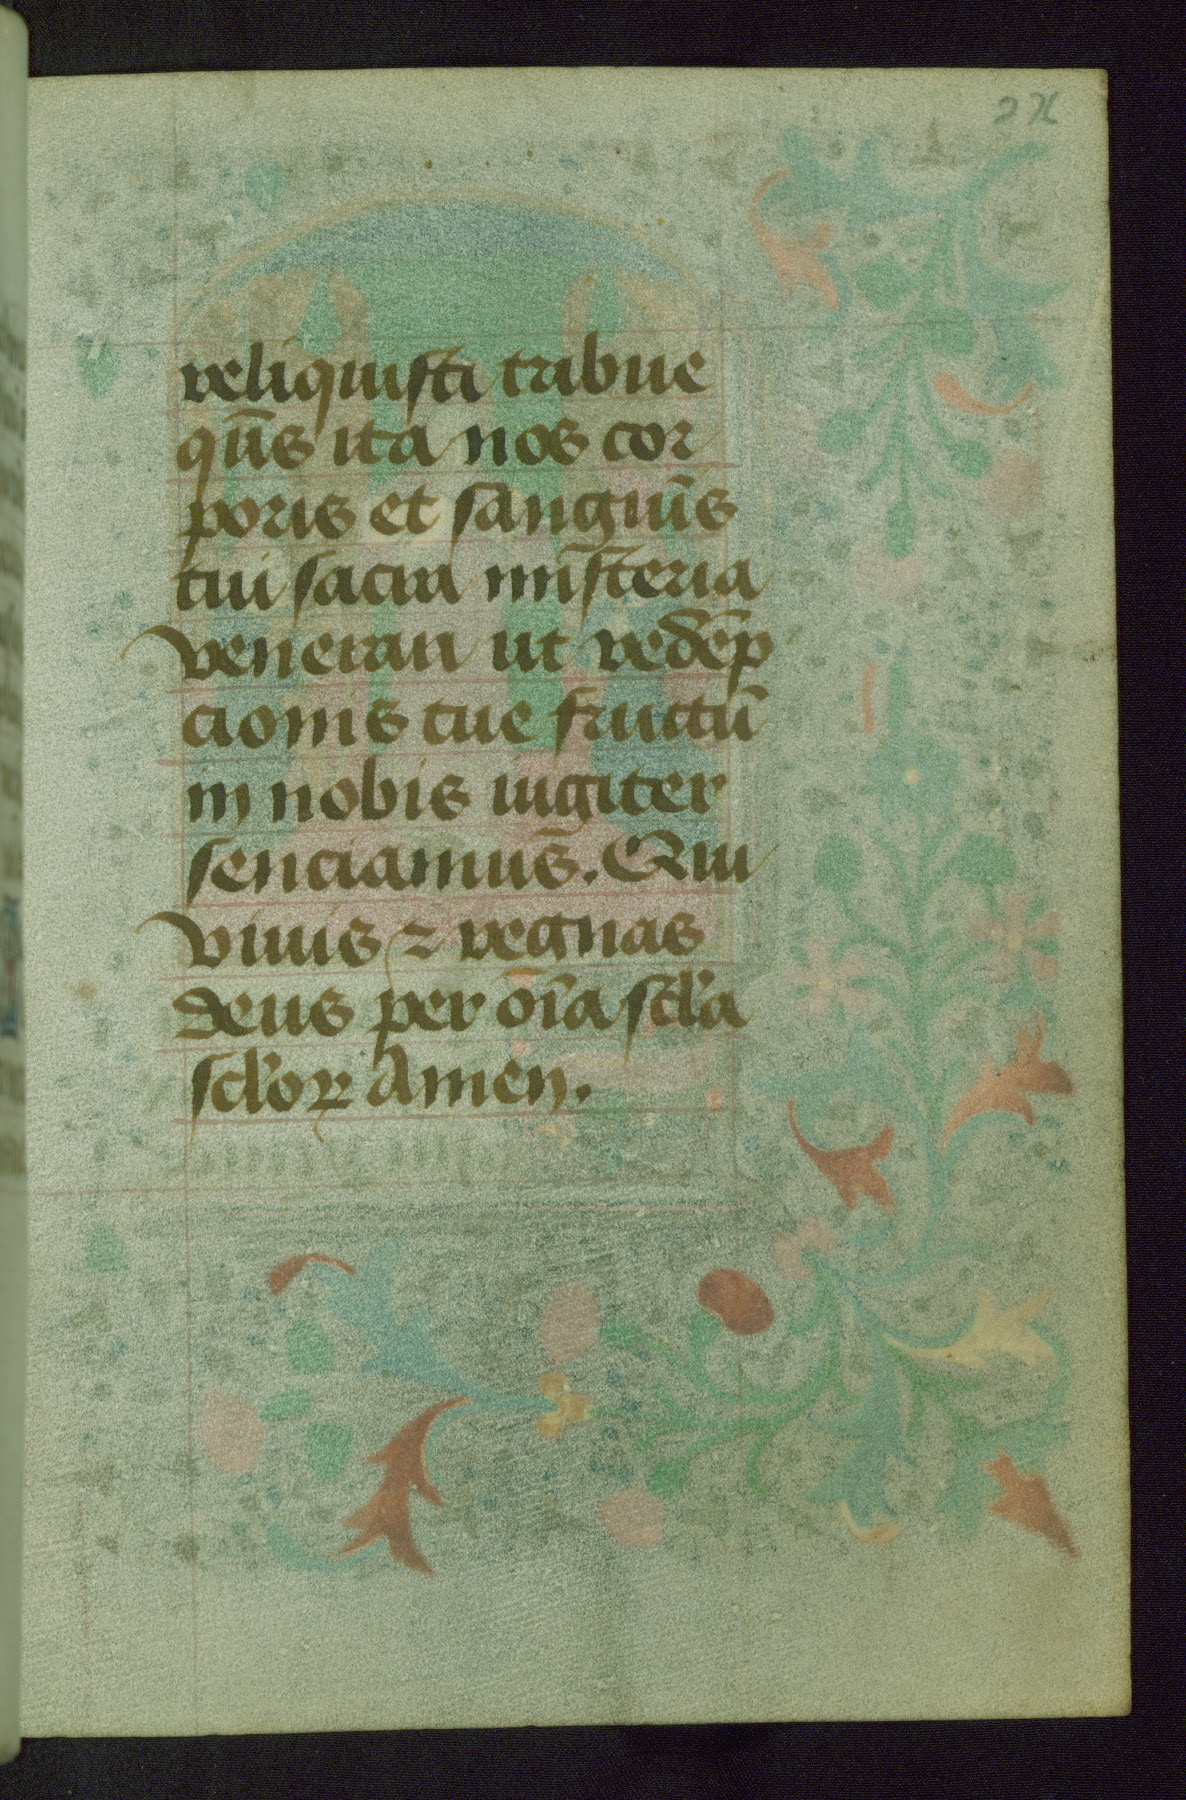 reliquisti tribue
qūs ita nos cor
poris et sanguīs
tui sacra mīsteria
venerari ut redēp
cionis tue fructū
in nobis iugiter
senciamus. Qui
vivis ⁊ regnas
deus per oīa scl'a
scl'oꝝ Amen.